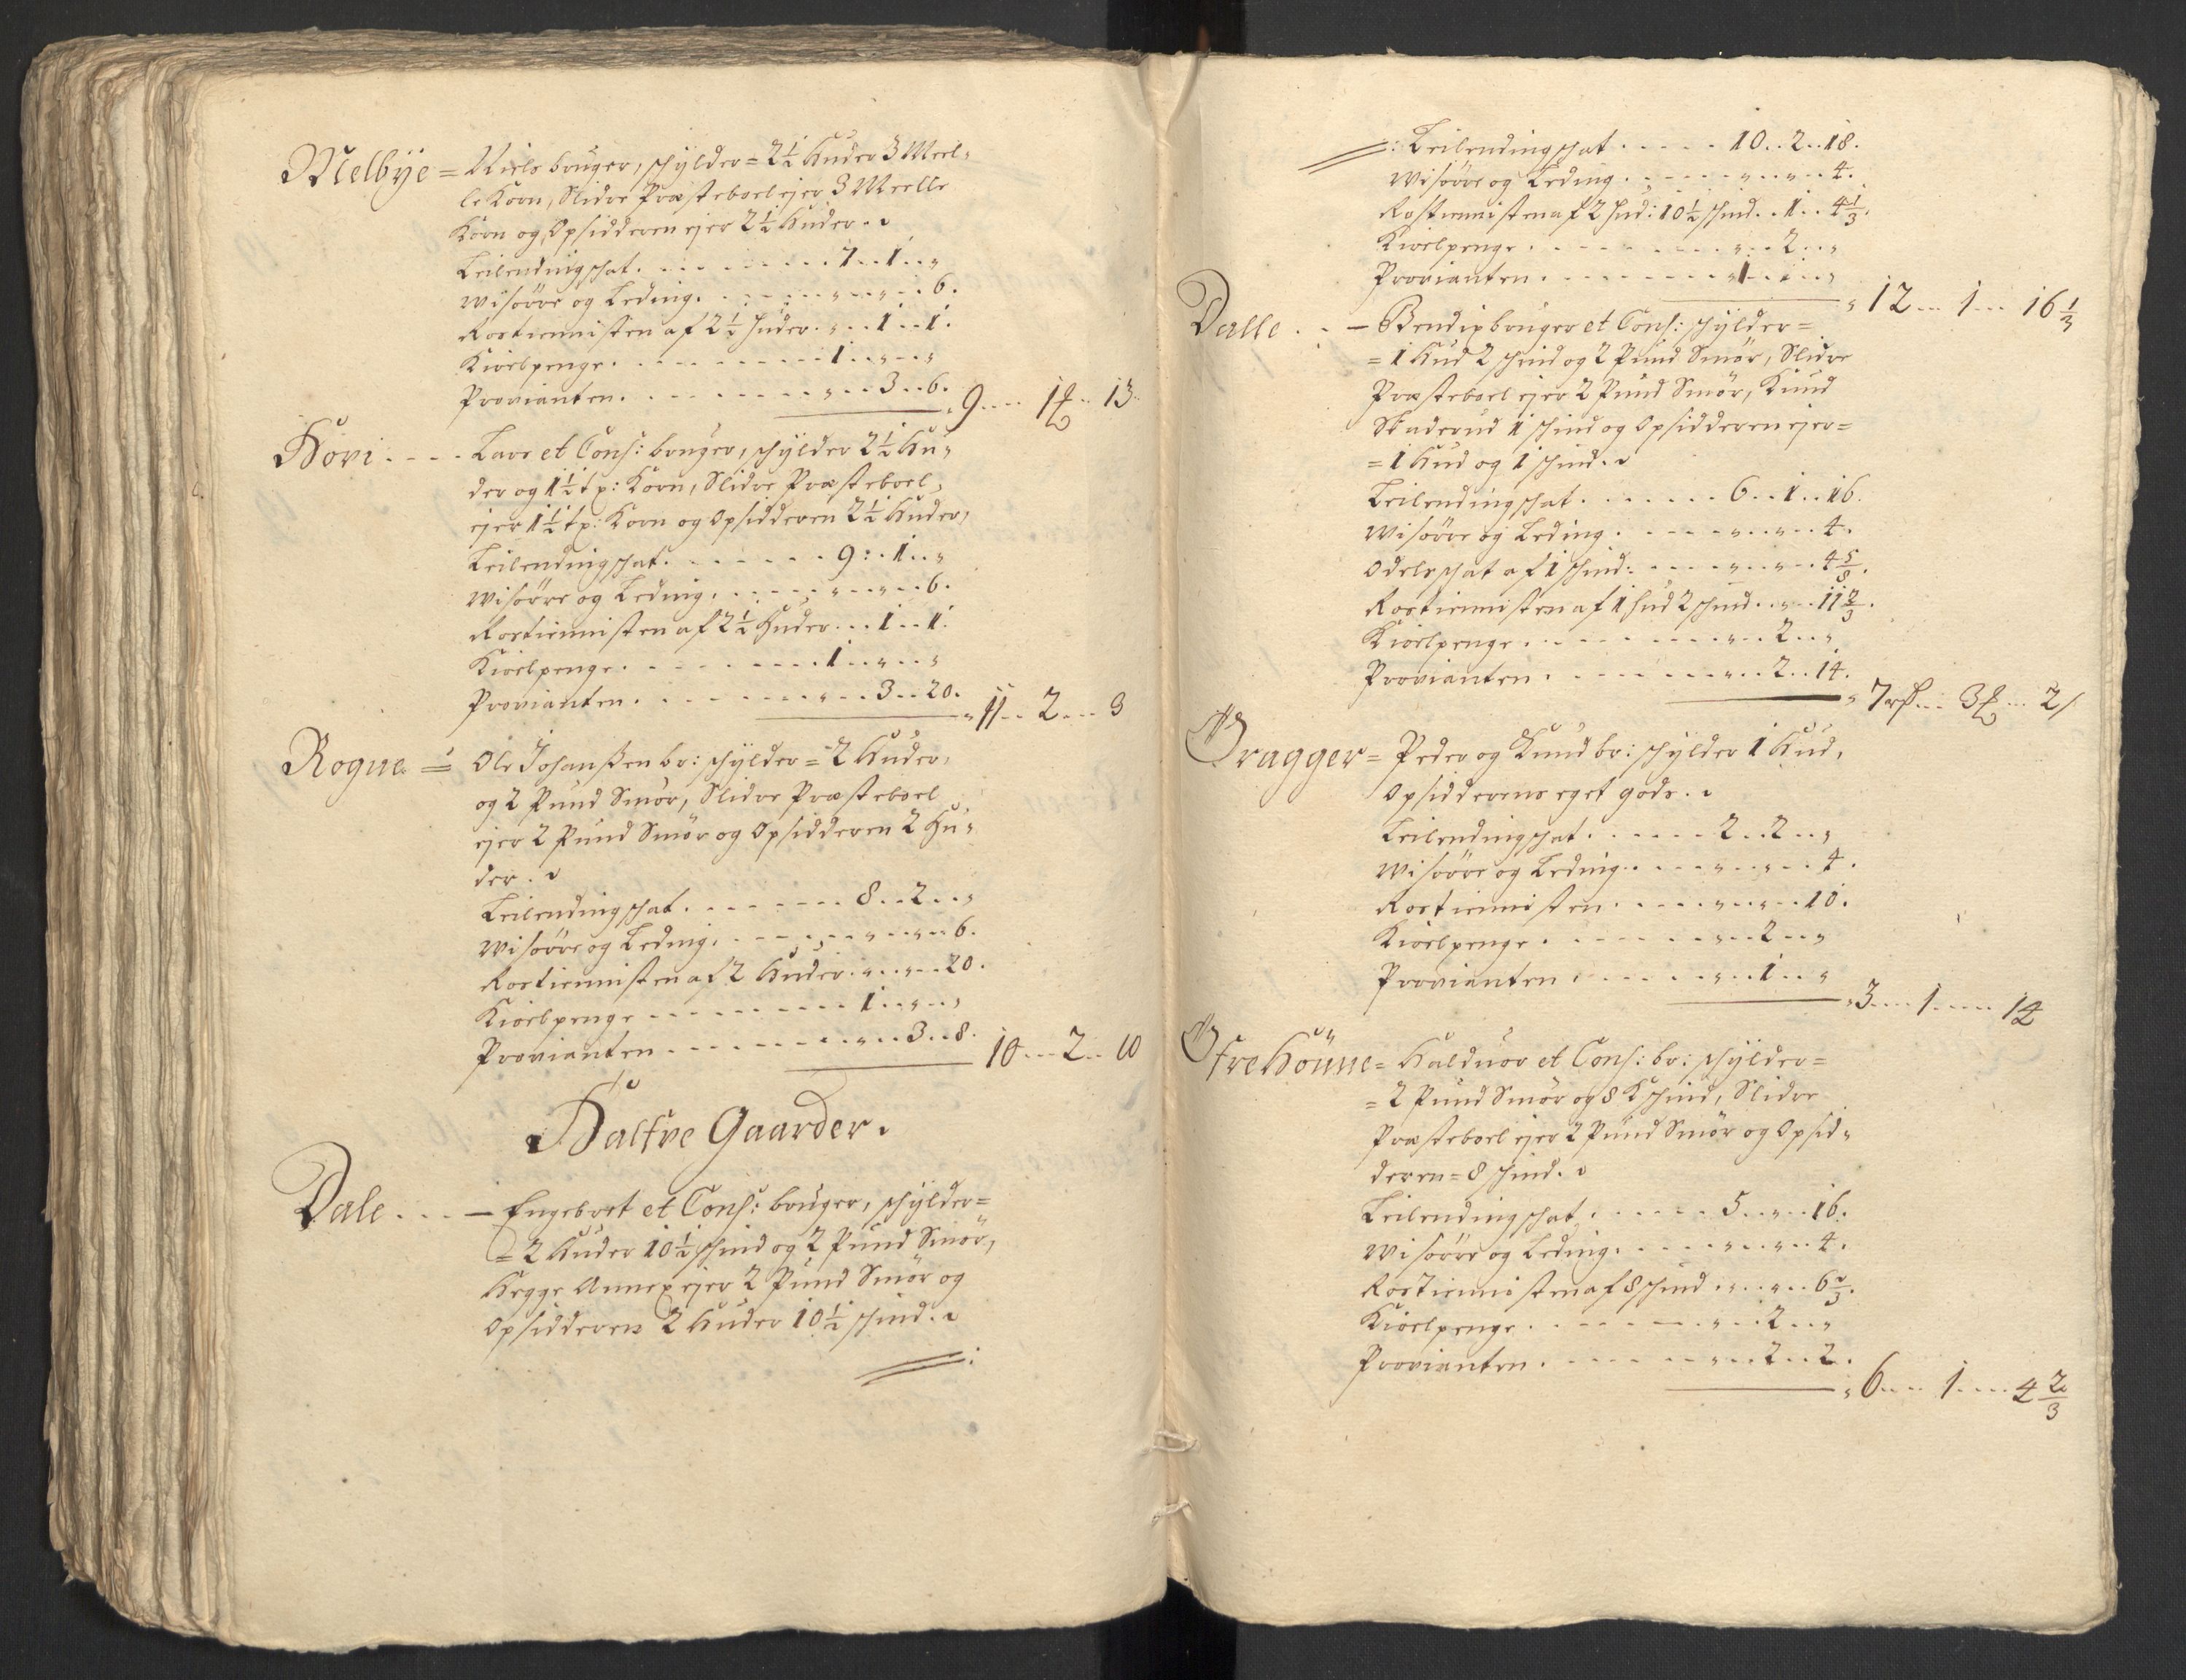 Melbÿe = Niels bruger, schÿlder = 2½ Huder 3 Meel,
le Korn, Slidre Præsteboel ejer 3 Meelle
Korn og Opsidderen ejer 2½ Huder.
Leilendingschat . . . 7 . . 1 . . „
Wisörre og Leding . . . „ . . „ . . 6.
Rostienisten af 2½ Huder . „ . . 1 . . 1.
Kioelpenge . . . 1 . . „ . . „
Provianten . . . „ . . 3 . . 6.
9 . . . 1 . . 13.
Hovi . . . Lars et Cons: bruger, schÿlder 2½ Hu,
der og 1½ tß: Korn, Slidre Præsteboel,
ejer 1½ tß: Korn og Opsidderen 2½ Huder,
Leilendingschat . . . 9 . . 1 . . „
Wisörre og Leding . . . „ . . „ . . 6.
Rostienisten af 2½ Huder . . . 1 . . 1.
Kioelpenge . . . 1 . . „ . . „
Provianten . . . „ . . 3 . . 20.
„ 11 . . 2 . . . 3
Rogne = Ole Johanßen br: schÿlder = 2 Huder,
og 2 Pund Smör, Slidre Præsteboel
ejer 2 Pund Smör og Opsidderen 2 Hu,
der.
Leilendingschat . . . 8 . . 2 . . „
Wisörre og Leding . . . „ . . „ . . 6.
Rostienisten af 2 Huder . „ . . „ . . 20.
Kioelpenge . . . 1 . . „ . . „
Provianten . . . „ . . 3 . . 8.
10 . . . 2 . . 10
Halfve Gaarder.
Dale . . . — Engebret et Cons: bruger, schÿlder =
= 2 Huder 10½ schind og 2 Pund Smör,
Hegge Annex ejer 2 Pund Smör og
Opsidderen 2 Huder 10½ schind.
=:
=: Leilendingschat . . . 10 . . 2 . . 18.
Wisörre og Leding . . . „ . . „ . . 4.
Rostienisten af 2 Hud: 10½ schind . . 1 . . 4⅓.
Kioelpenge . . . „ . . 2 . . „
Provianten . . . „ 1 . . „ . . „
„ 12 . . . 1 . . . 16⅓
Dalle . . — Bendix bruger et Cons: schÿlder =
= 1 Hud 2 schind og 2 Pund Smör, Slidre
Præsteboel ejer 2 Pund Smör, Knud
Skaderud 1 schind og Opsidderen ejer =
= 1 Hud og 1 schind.
Leilendingschat . . . 6 . . 1 . . 16.
Wisörre og Leding . . . „ . . „ . . 4.
Odelsschat af 1 schind: . . . „ . . „ . . 4⅝.
Rostienisten af 1 Hud 2 schind . . „ . . 11⅔.
Kioelpenge . . . „ . . 2 . . „
Provianten . . . „ . . 2 . . 14.
„ 7 rß . . . 3 . . . 2/
Gragger = Peder og Knud br: schÿlder 1 Hud,
Opsidderens eget gods.
Leilendingschat . . . 2 . . 2 . . „
Wisörre og Leding . . . „ . . „ . . 4.
Rostienisten . . . „ . . „ . . 10.
Kioelpenge . . . „ . . 2 . . „
Provianten . . . „ . . 1 . . „
„ 3 . . . 1 . . . 14
Öfre Hönne = Haldvor et Cons: br: schÿlder =
= 2 Pund Smör og 8 K schind, Slidre
Præsteboel ejer 2 Pund Smör og Opsid,
deren = 8 schind.
Leilendingschat . . . 5 . . „ . . 16.
Wisörre og Leding . . . „ . . „ . . 4.
Rostienisten af 8 schind . „ . . „ . . 6⅔.
Kioelpenge . . . „ . . 2 . . „
Provianten . . . „ . . 2 . . 2.
„ 6 . . . 1 . . . 4⅔